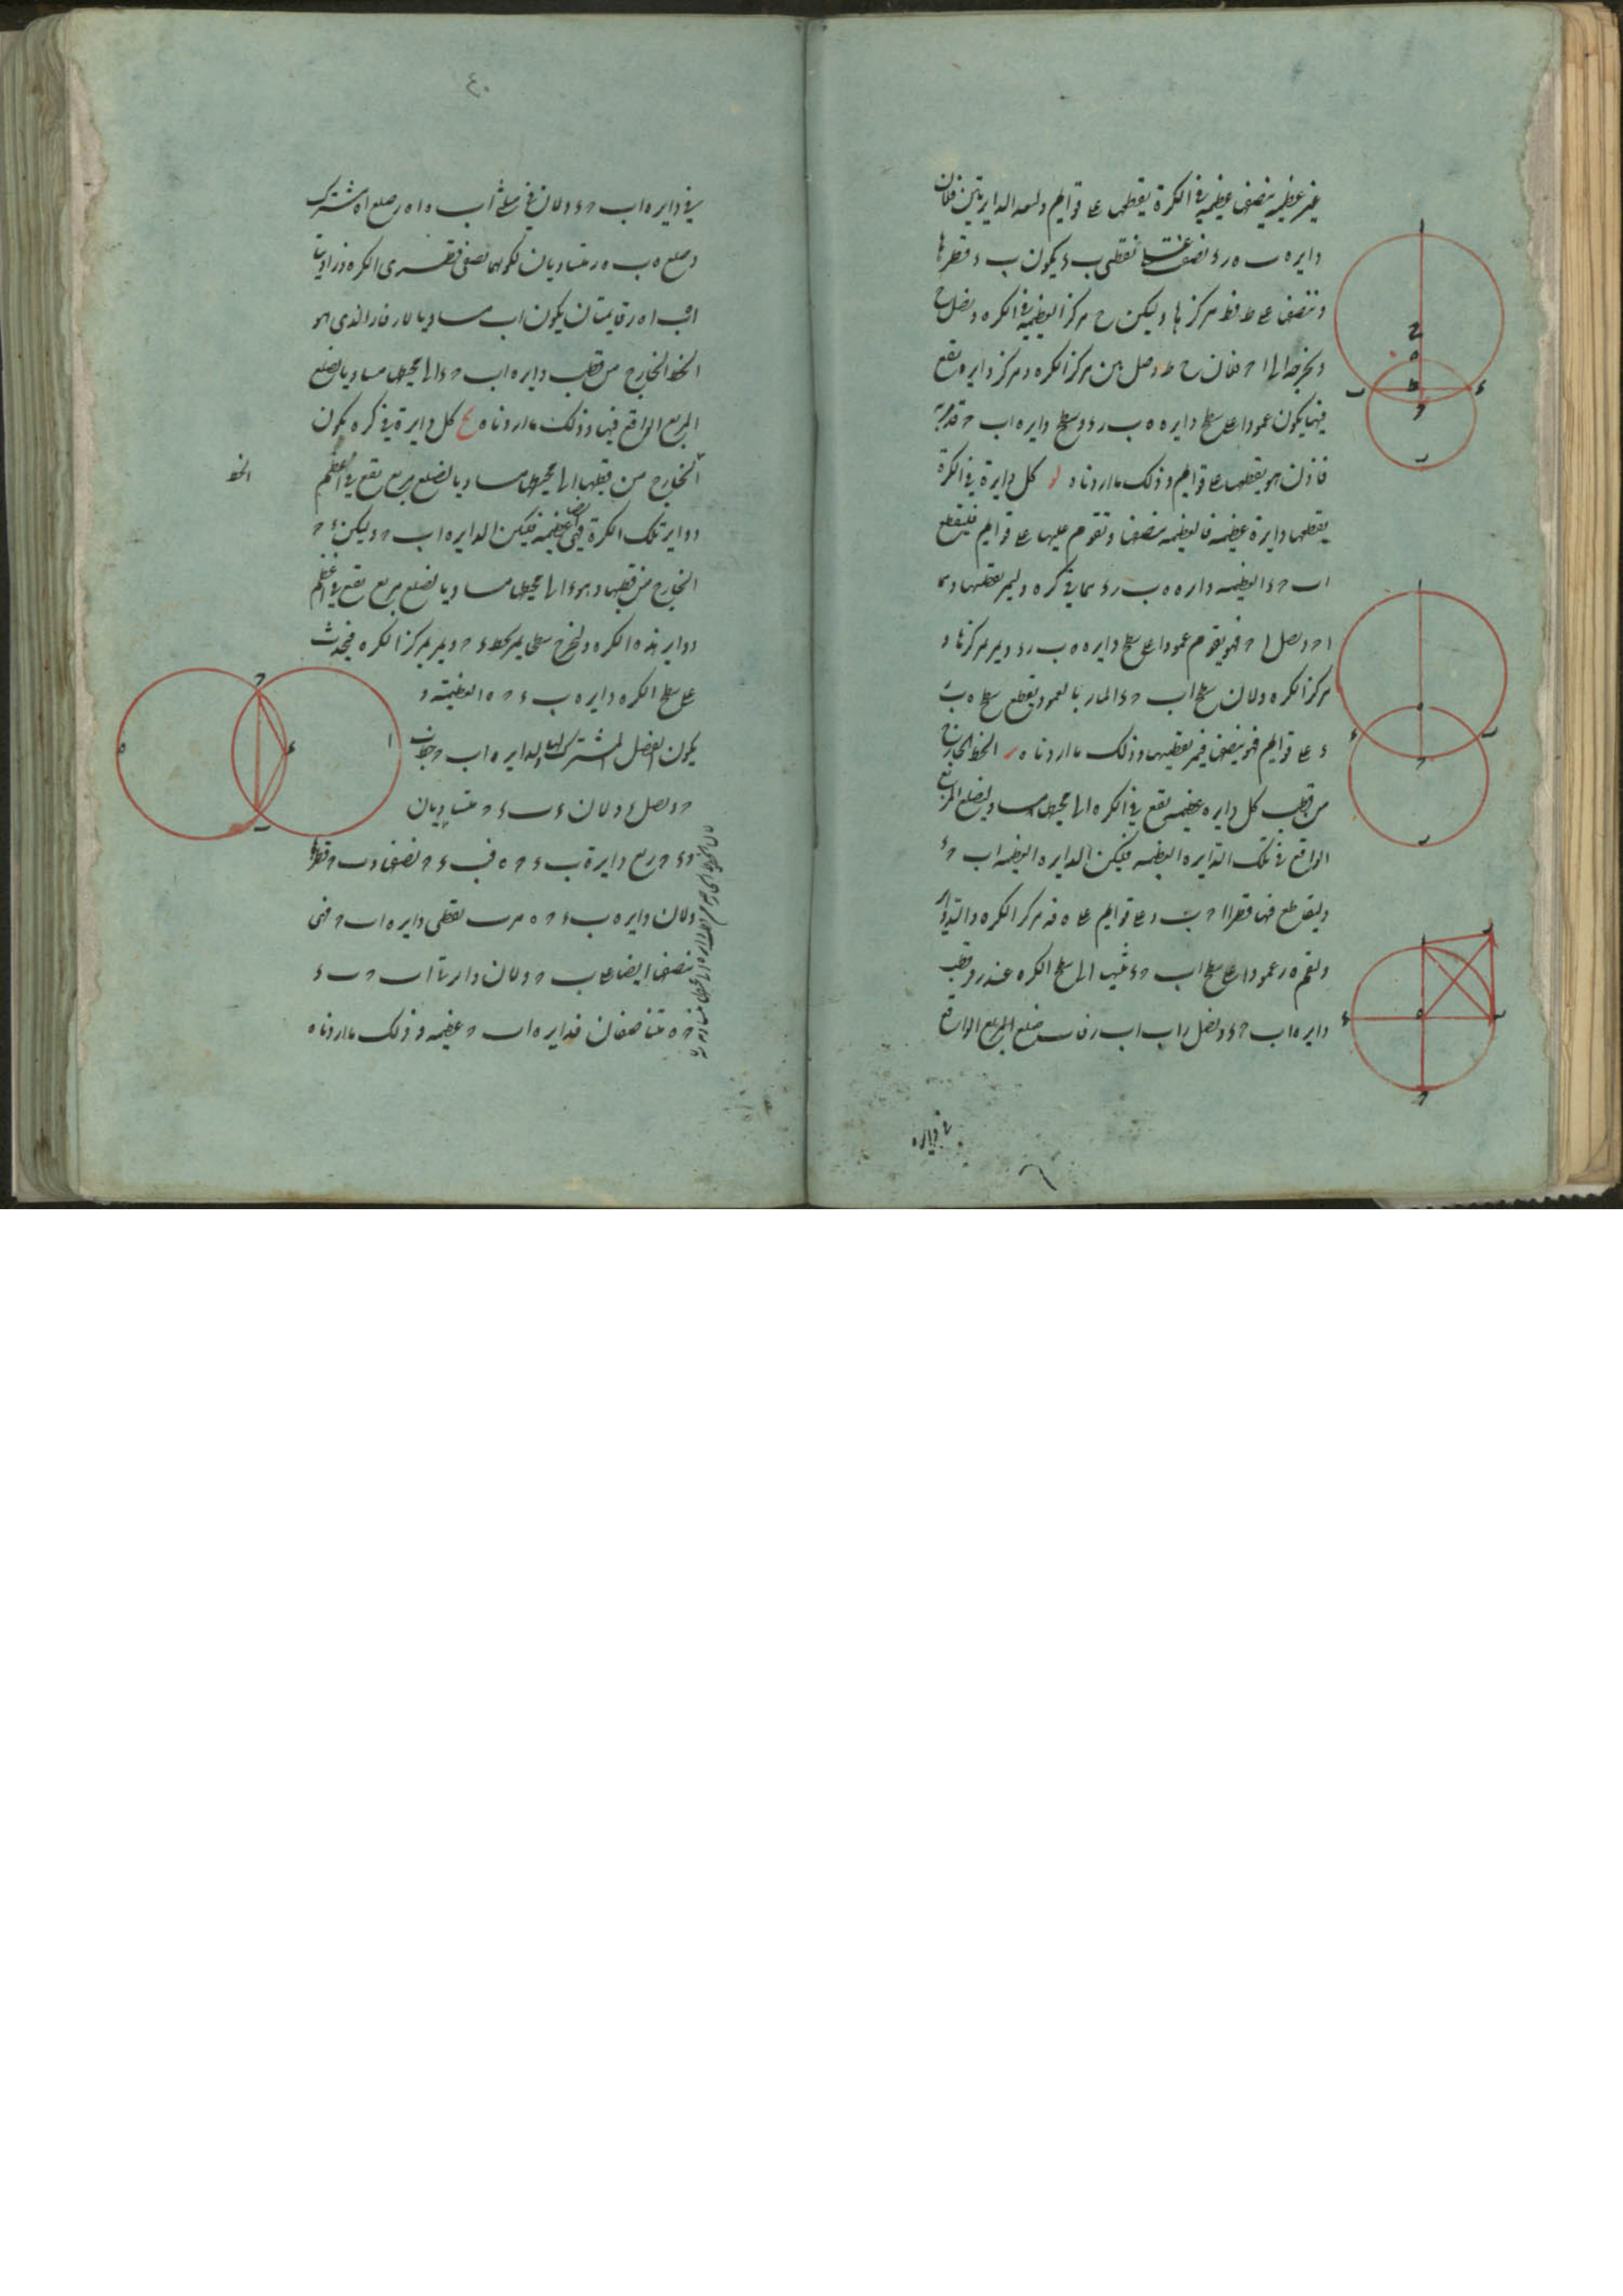 غير عظيمة ينصفها عظيمة في الكرة يقطعها على قوايم ولتعد الدايرتين فلان
دايره ه ب ر د نصف عظيمتها بنقطتي ب د يكون ب د قطرها
وننصف على ط فط مركزها وليكن ح مركز العظيمة في الكره ونصل ح
ونخرجه الى ا ح فلان ح ط وصل بين مركز الكره ومركز دايره تقع
فيها يكون عمودا على سطح دايره ه ب ر د وسطح دايره اب ح د يمر به
فاذن هو يقطعها على قوايم وذلك ما اردناه و كل دايرة في الكرة
يقطعها دايرة عظيمه فالعظيمه ينصفها وتقوم عليها على قوايم فليقطع
اب ح د العظيمه دايره ه ب ر د مما في كره وليمر بقطبيها وهما
ا ح ونصل ا ح فهو يقوم عمودا على سطح دايره ه ب ر د ويمر بمركزها و
مركز الكره ولان سطح اب ح د المار بالعمود يقطع سطح ه ب
ر د على قوايم فهو ينصفها فيمر بقطبيها وذلك ما اردناه ر الخط الخارج
من قطب كل دايره عظيمه تقع في الكره الى محيطها مساو لضلع المربع
الواقع في تلك الدايره العظيمه فليكن الدايره العظيمه اب ح د
وليتقاطع فيها قطرا ا ح ب د على قوايم على ه فه مركز الكره والدايره
ولنقم ه ر عمودا على سطح اب ح د وينتهي الى سطح الكره عند ر وقطب
دايره اب ح د ونصل ر ب اب فاب ضلع المربع الواقع
في دايره
٤٠
في دايره اب ح د ولان في مثلثي اب ه ا ه ر ضلع ا ه مشترك
وضلعي ه ب ه ر متساويان لكونهما نصفي قطري الكره وزاويتا
ا ه ب ا ه ر قايمتان يكون اب مساويا لار فار الذي هو
الخط الخارج من قطب دايره اب ح د الى محيطها مساويا لضلع
المربع الواقع فيها وذلك ما اردناه ح كل دايرة في كره يكون
الخط
الخارج من قطبها الى محيطها مساويا لضلع مربع يقع في اعظم
دواير تلك الكرة فهي ايضا عظيمه فليكن الدايره اب ح وليكن د ح
الخارج من قطبها وهو د الى محيطها مساويا لضلع مربع يقع في اعظم
دواير هذه الكره ولنخرج سطحا يمر بخط د ح ويمر بمركز الكره فيحدث
على سطح الكره دايره ب د ح ه العظيمه و
يكون الفصل المشترك لها ولدايره اب ح خط ب
ح ونصل د ب ولان د ب د ح متساويان
و د ح ربع دايرة ب د ح ه فب د ح نصفها و ب ح قطرها
ولان دايره ب د ح ه مرت بقطبي دايره اب ح فهي
تنصفها ايضا على ب ح ولان دايرتا اب ح ب د
ح ه متناصفان فدايره اب ح عظيمه وذلك ما اردناه